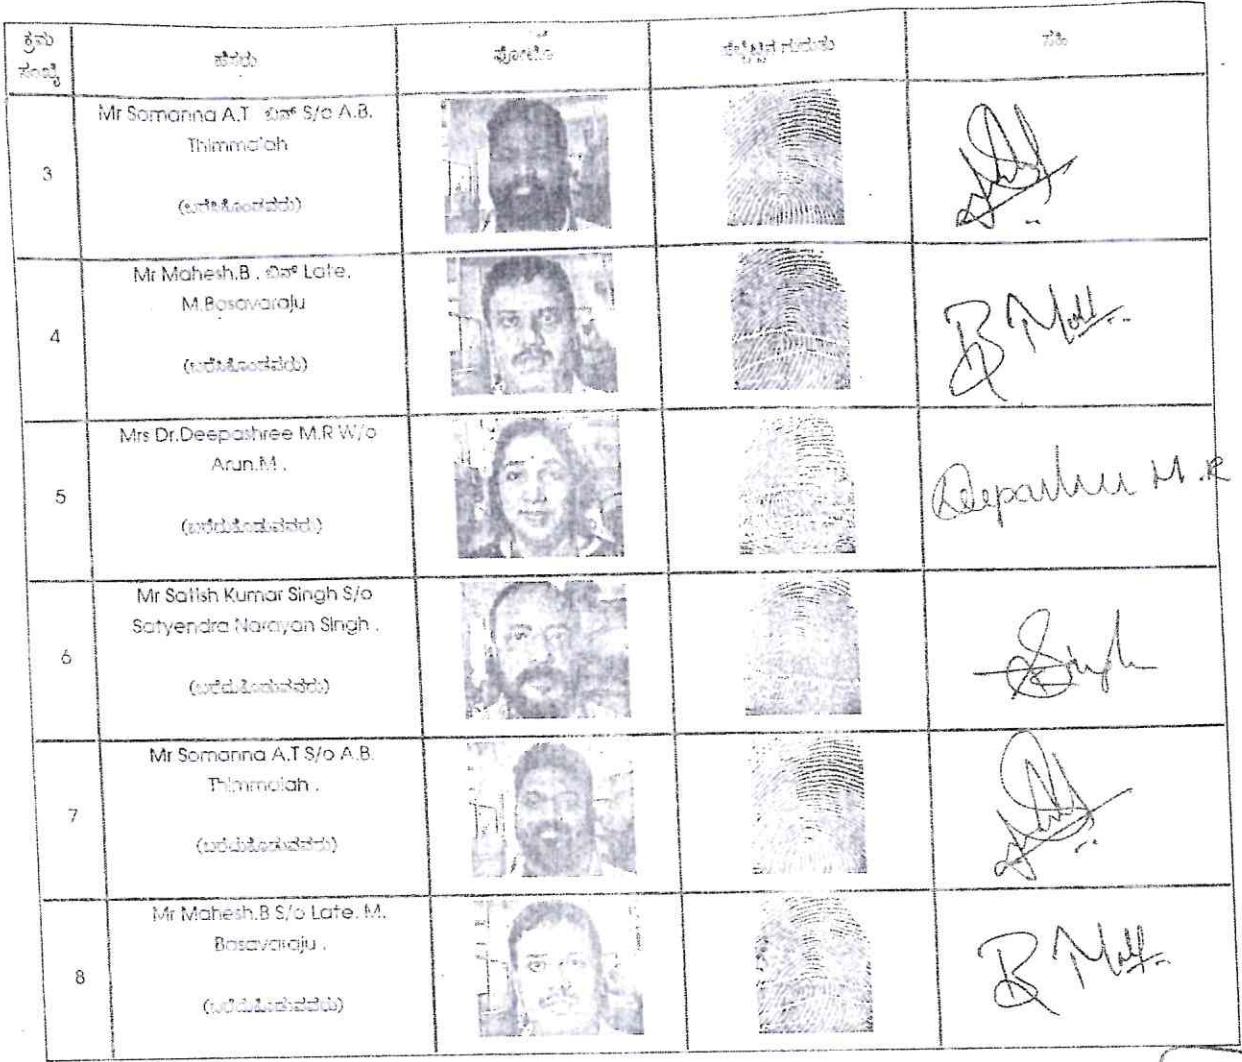 ಕ್ರಮ
ಸಂಖ್ಯೆ
ಹೆಸರು
ಫೋಟೊ
ಹೆಬ್ಬೆಟ್ಟಿನ ಗುರುತು
ಸಹಿ
3
Mr Somanna A.T ಬಿನ್ S/o A.B.
Thimmaiah
(ಬರೆಸಿಕೊಂಡವರು)
4
Mr Mahesh.B . ಬಿನ್ Late.
M.Basavaraju
(ಬರೆಸಿಕೊಂಡವರು)
B
5
Mrs Dr.Deepashree M.R W/o
Arun.M .
(ಬರೆದುಕೊಡುವವರು)
Deepashree M.R
6
Mr Satish Kumar Singh S/o
Satyendra Narayan Singh .
(ಬರೆದುಕೊಡುವವರು)
Singh
7
Mr Somanna A.T S/o A.B.
Thimmaiah .
(ಬರೆದುಕೊಡುವವರು)
8
Mr Mahesh.B S/o Late. M.
Basavaraju .
(ಬರೆದುಕೊಡುವವರು)
B